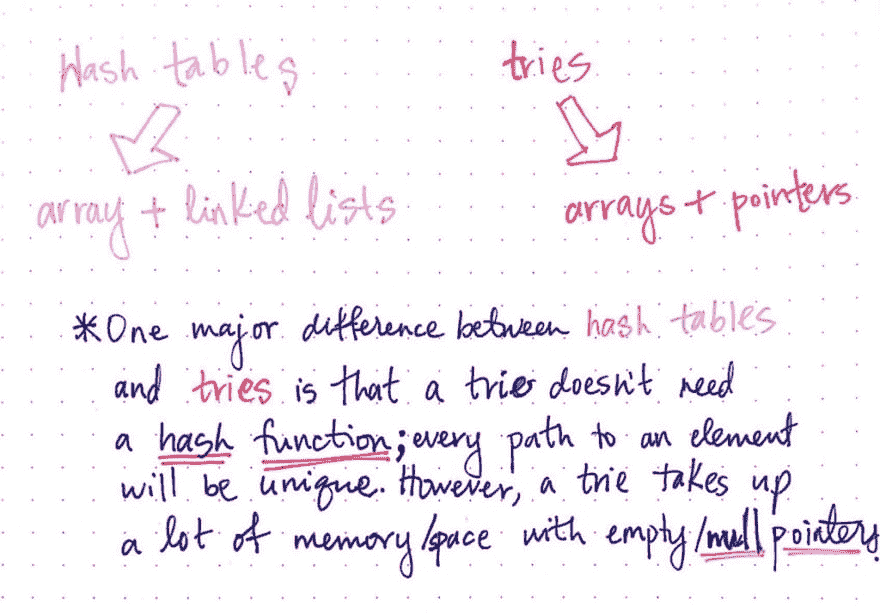 Hash tables
tries
array + linked lists
arrays + pointers
*One major difference between hash tables
and tries is that a trie doesn't need
a hash function; every path to an element
will be unique. However, a trie takes up
a lot of memory/space with empty/null pointers.